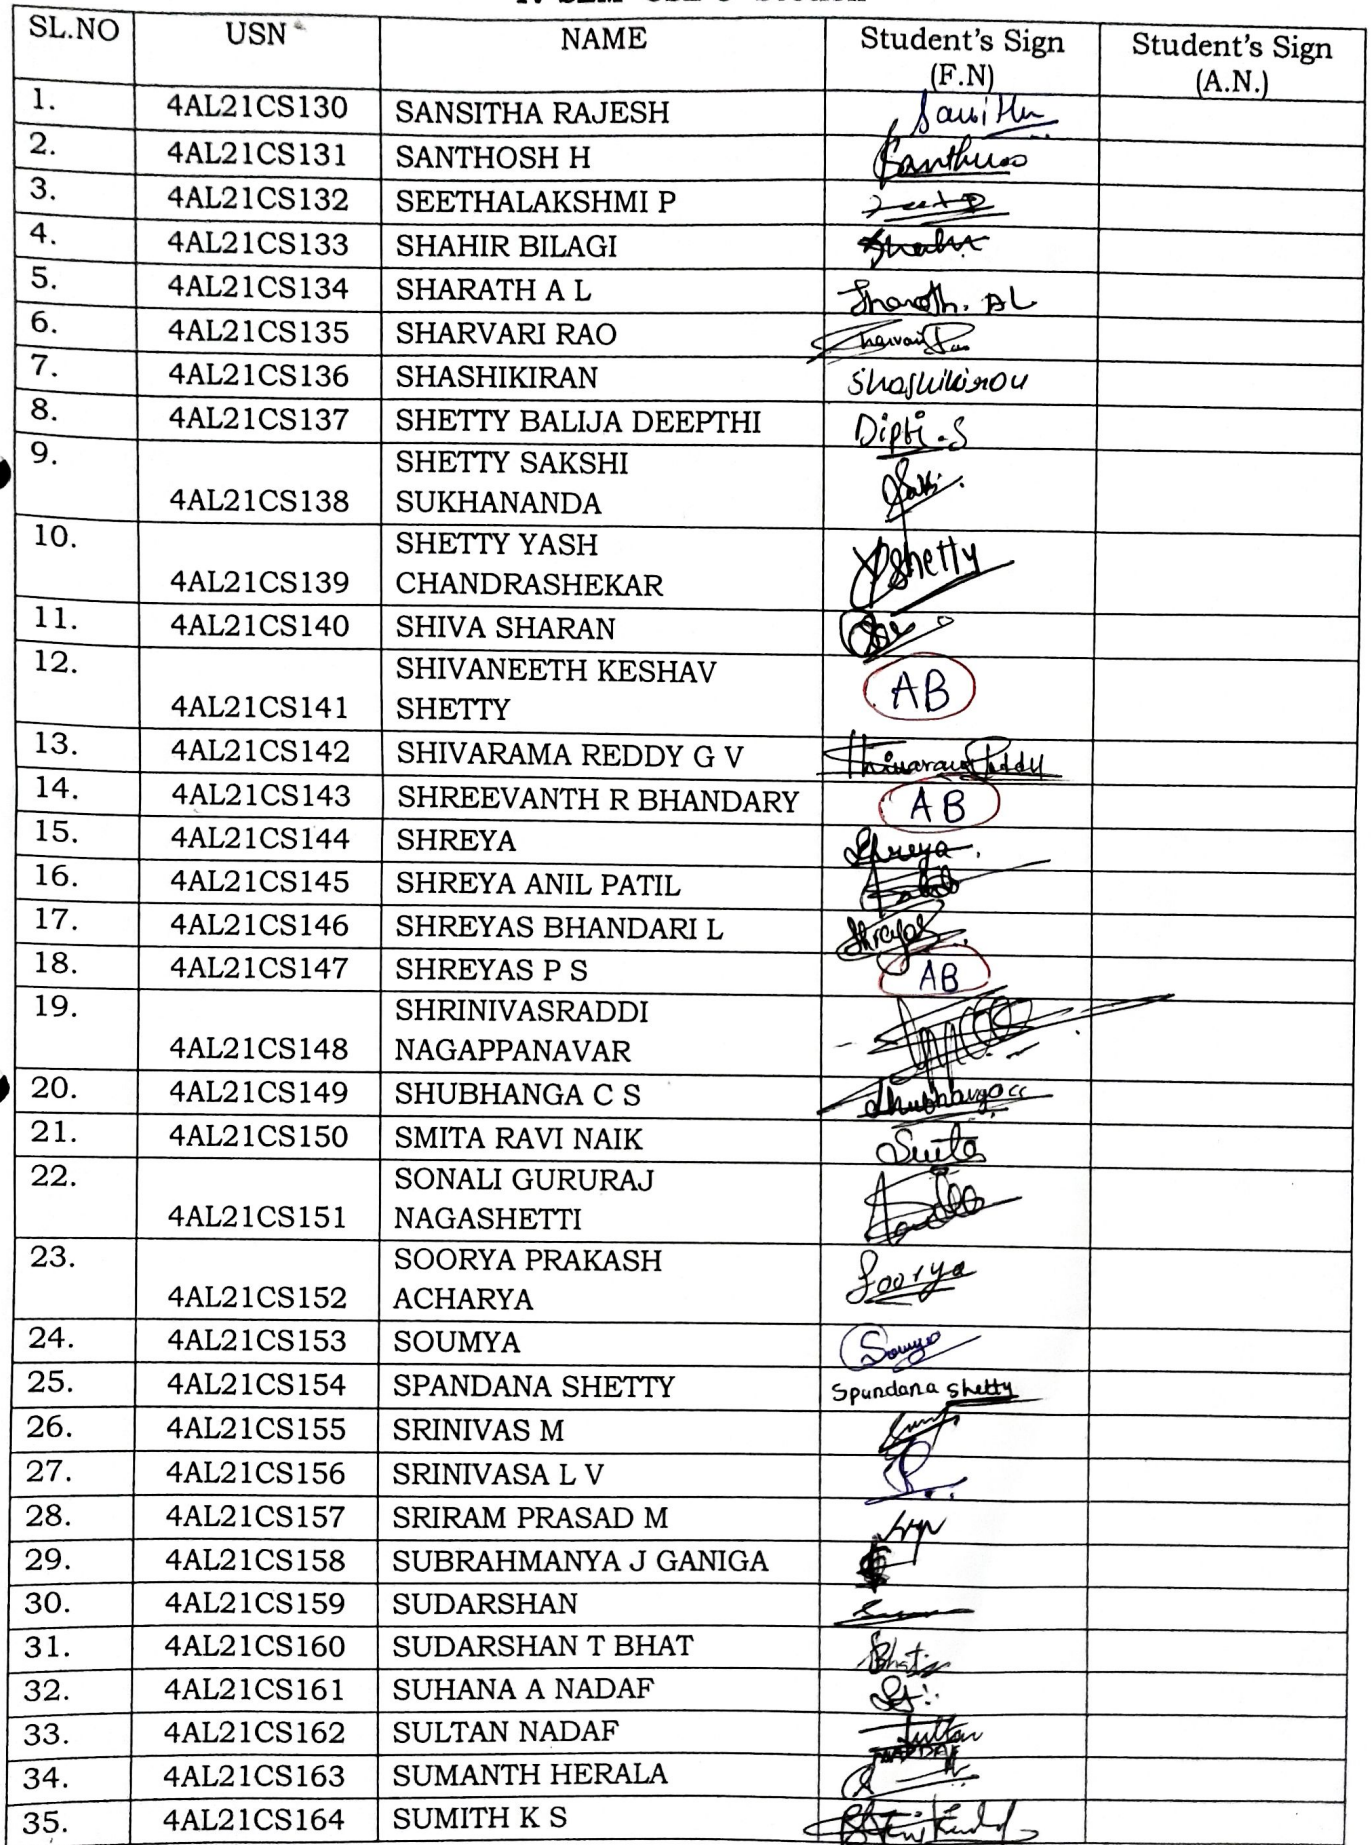 SL.NO USN NAME Student's Sign (F.N) Student's Sign (A.N.)
1. 4AL21CS130 SANSITHA RAJESH
2. 4AL21CS131 SANTHOSH H
3. 4AL21CS132 SEETHALAKSHMI P
4. 4AL21CS133 SHAHIR BILAGI
5. 4AL21CS134 SHARATH A L Sharath. AL
6. 4AL21CS135 SHARVARI RAO
7. 4AL21CS136 SHASHIKIRAN Shashikiran
8. 4AL21CS137 SHETTY BALIJA DEEPTHI Dipti.S
9. SHETTY SAKSHI
4AL21CS138 SUKHANANDA
10. SHETTY YASH
4AL21CS139 CHANDRASHEKAR YShetty
11. 4AL21CS140 SHIVA SHARAN
12. SHIVANEETH KESHAV
4AL21CS141 SHETTY AB
13. 4AL21CS142 SHIVARAMA REDDY G V
14. 4AL21CS143 SHREEVANTH R BHANDARY AB
15. 4AL21CS144 SHREYA Shreya.
16. 4AL21CS145 SHREYA ANIL PATIL
17. 4AL21CS146 SHREYAS BHANDARI L Shreyas
18. 4AL21CS147 SHREYAS P S AB
19. SHRINIVASRADDI
4AL21CS148 NAGAPPANAVAR
20. 4AL21CS149 SHUBHANGA C S
21. 4AL21CS150 SMITA RAVI NAIK Smita
22. SONALI GURURAJ
4AL21CS151 NAGASHETTI
23. SOORYA PRAKASH
4AL21CS152 ACHARYA Soorya
24. 4AL21CS153 SOUMYA Soumya
25. 4AL21CS154 SPANDANA SHETTY Spandana Shetty
26. 4AL21CS155 SRINIVAS M
27. 4AL21CS156 SRINIVASA L V
28. 4AL21CS157 SRIRAM PRASAD M
29. 4AL21CS158 SUBRAHMANYA J GANIGA
30. 4AL21CS159 SUDARSHAN
31. 4AL21CS160 SUDARSHAN T BHAT Bhat
32. 4AL21CS161 SUHANA A NADAF
33. 4AL21CS162 SULTAN NADAF Sultan
34. 4AL21CS163 SUMANTH HERALA
35. 4AL21CS164 SUMITH K S